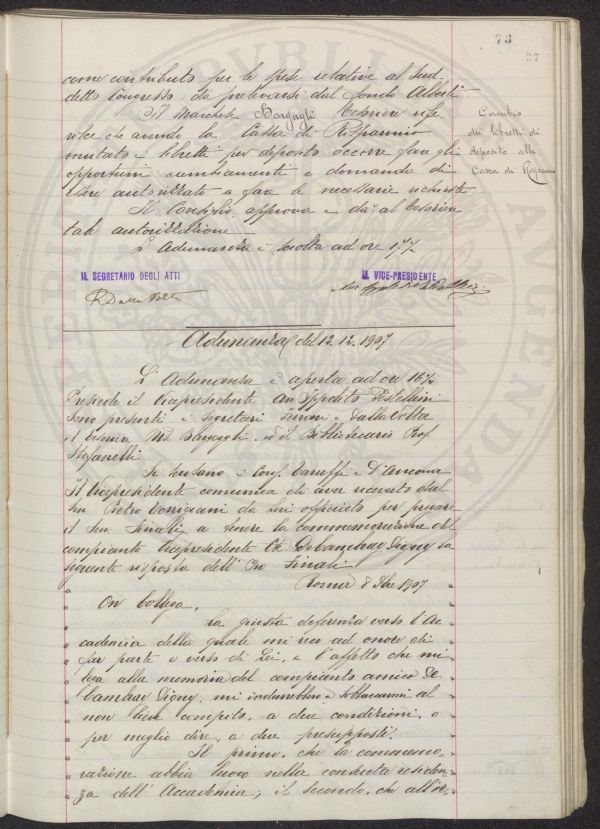 73
37
come contributo per le spese relative al sud-
detto Congresso da prelevarsi dal fondo Alberti
Il Marchese Bargagli Tesoriere rife
risce che avendo la Cassa di Risparmio
mutato i libretti per deposito occorre fare gli
opportuni cambiamenti e domanda di
essere autorizzato a fare le necessarie richieste
Il Consiglio approva e dà al Tesoriere
tale autorizzazione
L'Adunanza è sciolta ad ore 17½
Cambio
dei libretti di
deposito alla
Cassa di Risparmio
IL SEGRETARIO DEGLI ATTI
IL VICE-PRESIDENTE
R Dalla Volta
Adunanza del 12.12.1907
L'Adunanza è aperta ad ore 16½
Presiede il Vicepresidente Avv Ippolito Pestellini
Sono presenti i Segretari Ferrari e Dalla Volta
il Tesoriere Mse Bargagli ed il Bibliotecario Prof
Stefanelli
Si scusano i Cons. Baruffi e D'Ancona
Il Vicepresidente comunica di aver ricevuto dal
Sen Pietro Torrigiani da Lui officiato per pregare
il Sen. Finali a tenere la commemorazione del
compianto Vicepresidente Cte Decambray Digny la
seguente risposta dell'On Finali
" Roma 8 Xbre 1907 "
" On Collega, "
" la giusta deferenza verso l'Ac- "
" cademia della quale mi reco ad onore di "
" far parte e verso di Lei, e l'affetto che mi "
" lega alla memoria del compianto amico De "
" Cambray Digny, mi indurrebbero a sobbarcarmi al "
" non lieve compito, a due condizioni, o "
" per meglio dire, a due presupposti. "
" Il primo, che la commemo- "
" razione abbia luogo nella consueta residen- "
" za dell'Accademia; il secondo, che all'o-